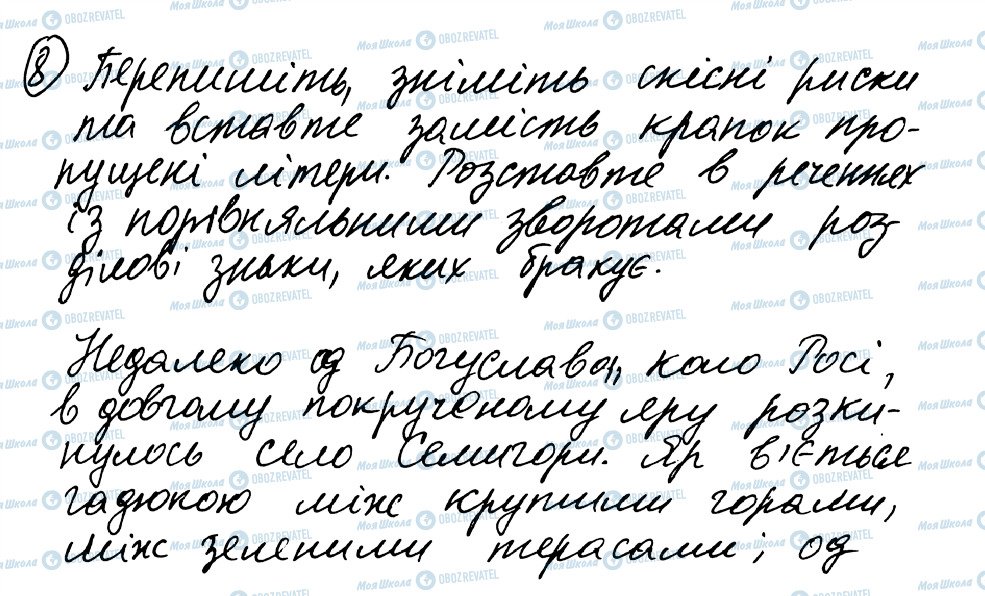 8 Перепишіть, зніміть скісні риски
та вставте замість крапок про-
пущені літери. Розставте в реченнях
із порівняльними зворотами роз-
ділові знаки, яких бракує.
Недалеко од Богуслава, коло Росі,
в довгому покрученому яру розки-
нулось село Семигори. Яр в'ється
гадюкою між крутими горами,
між зеленими терасами; од